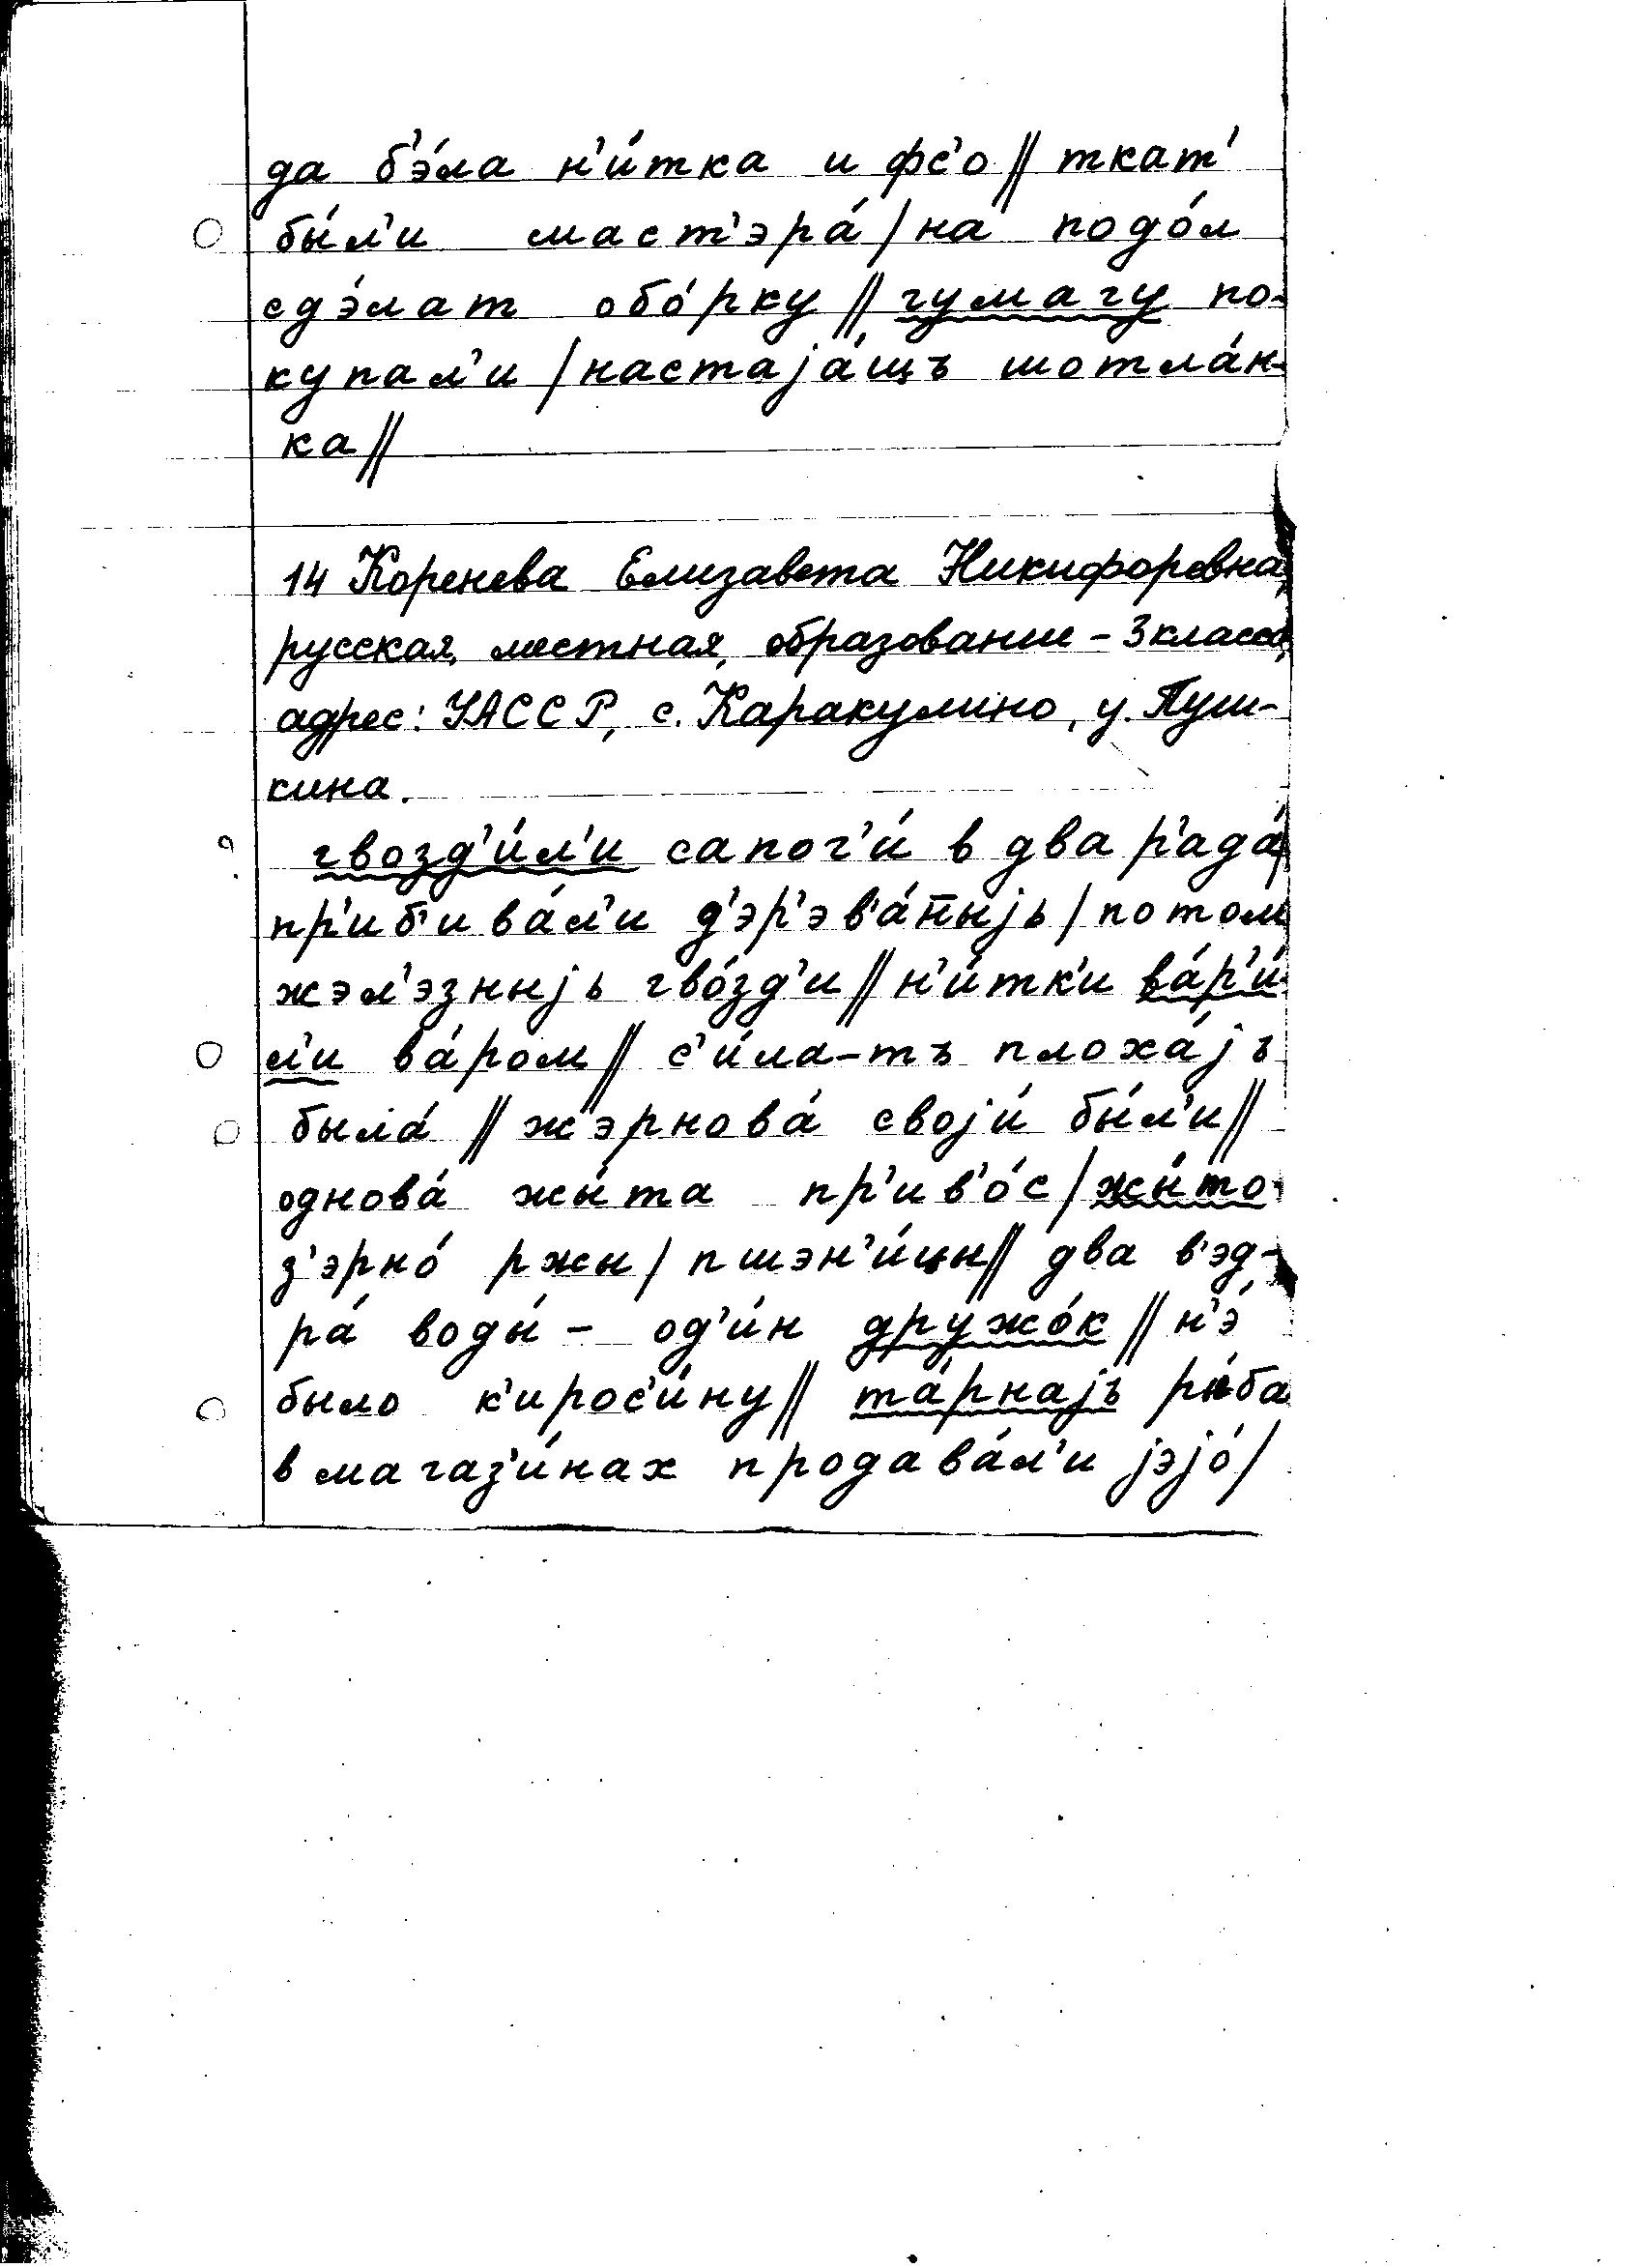 да б'э́ла н'и́тка и фс'о // ткат'
бы́л'и маст'эра́ / на подо́л
сдэ́лат обо́рку // гумагу по-
купал'и / настаjа́щъ шотла́н-
ка //
14 Коренева Елизавета Никифоровна
русская, местная, образование - 3 класса,
адрес: УАССР, с. Каракулино, у. Пуш-
кина.
гвозд'и́л'и сапог'и́ в два р'ада́
пр'иб'ива́л'и д'эр'эв'а́ныjь / потом
жэл'эзныjь гво́зд'и // н'и́тк'и ва́р'и́-
л'и ва́ром // с'и́ла-тъ плоха́jъ
была́ // жэрнова́ своjи́ бы́л'и //
однова́ жы́та пр'ив'о́с / жы́то-
з'эрно́ ржы / пшэн'и́цы // два в'эд-
ра́ воды́ - од'и́н дружо́к // н'э́
было к'ирос'и́ну // та́рнаjъ ры́ба
в магаз'и́нах продава́л'и jэjо́ /